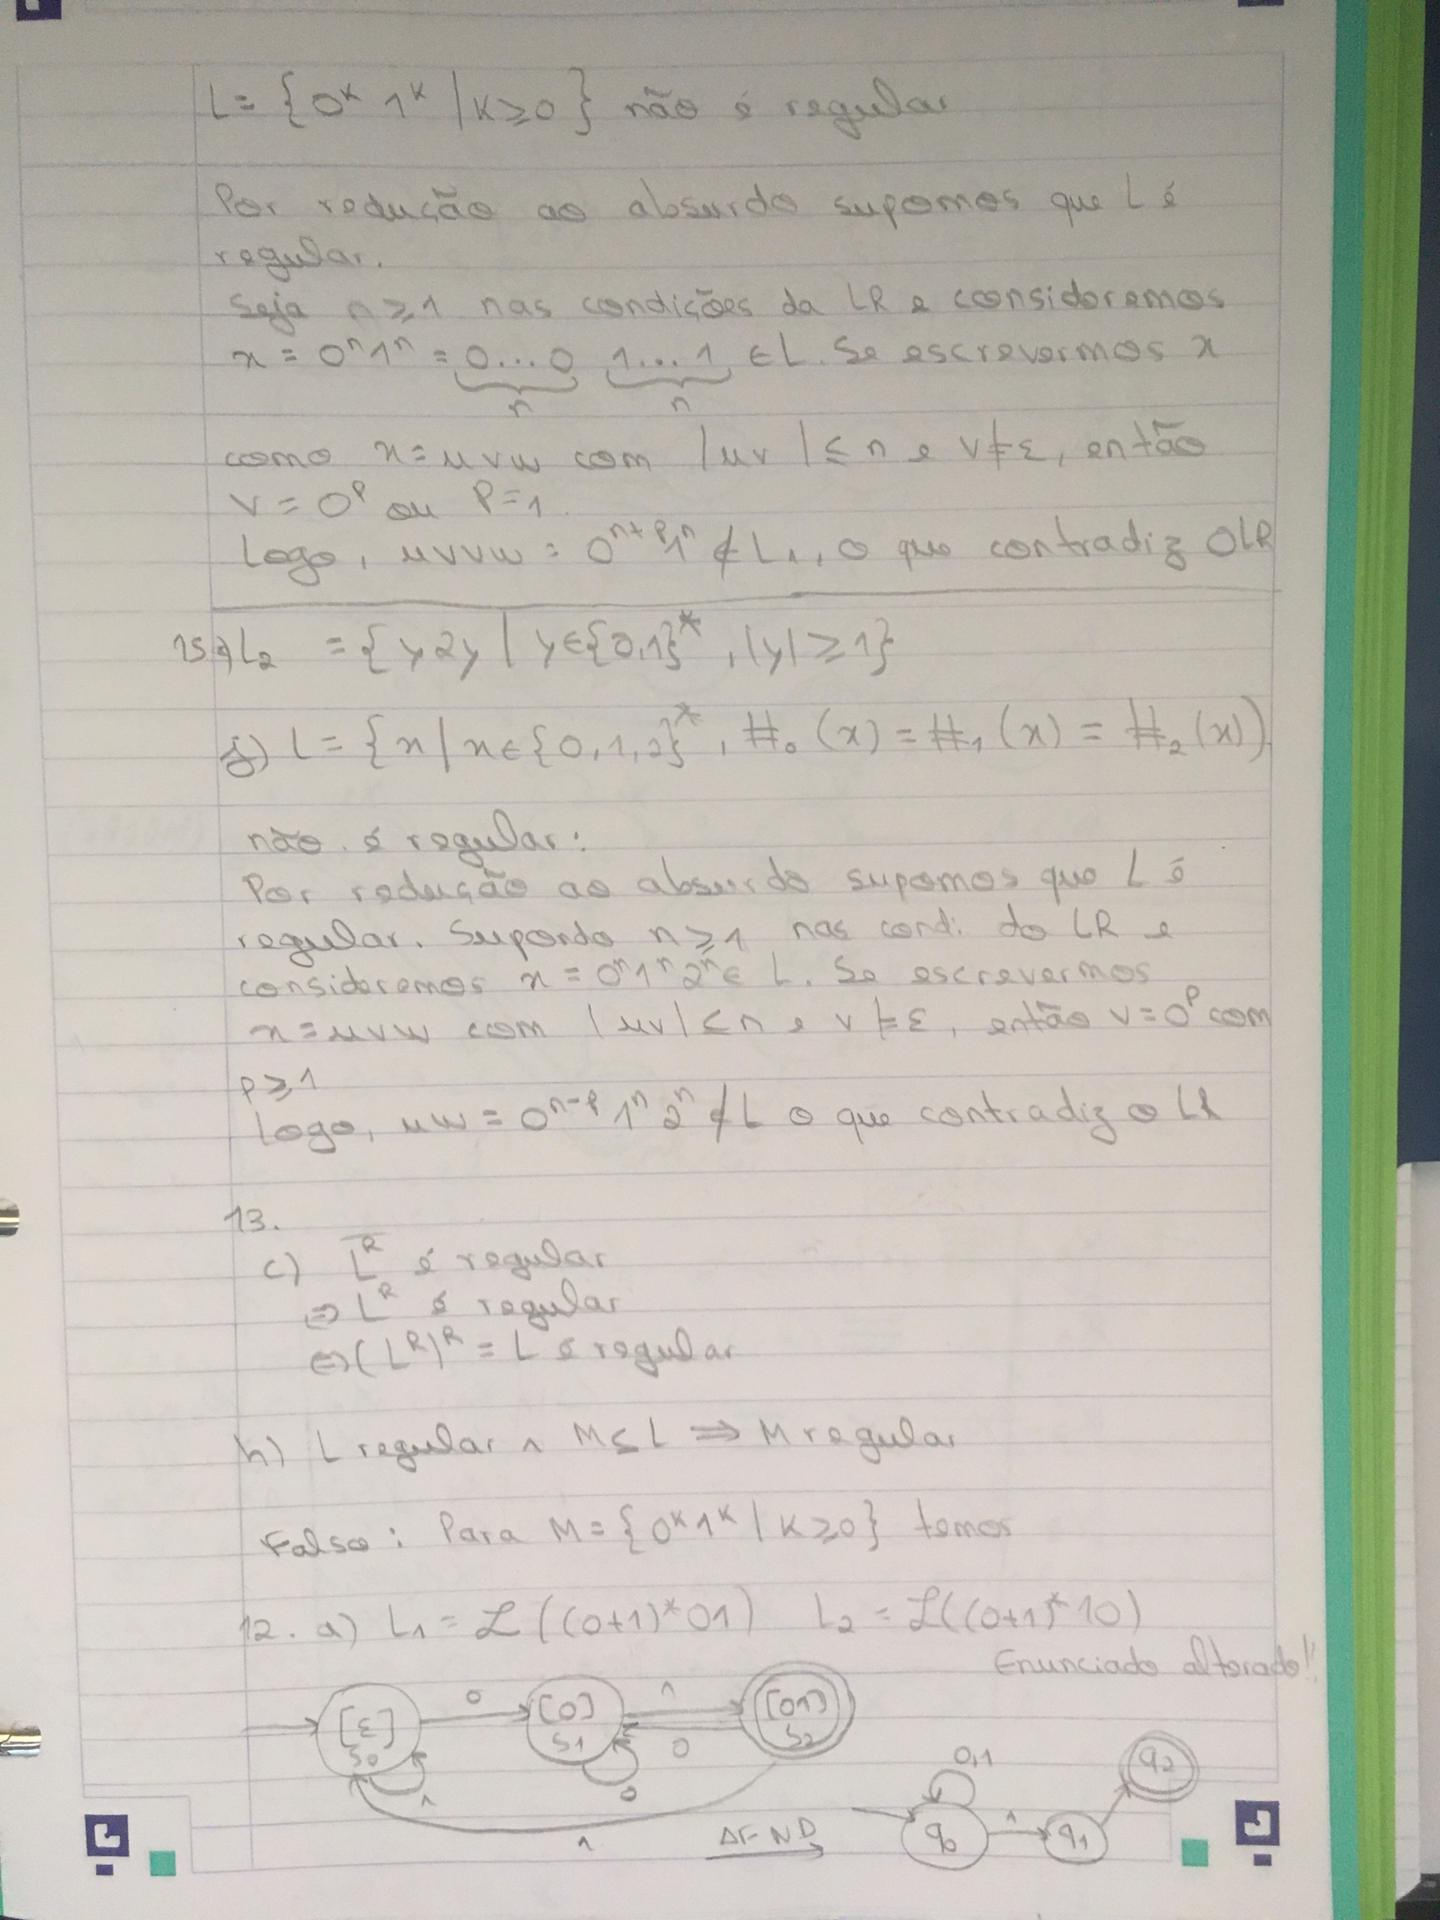 L = {0^k 1^k | k ≥ 0} não é regular
Por redução ao absurdo supomos que L é
regular.
Seja n ≥ 1 nas condições da LR e consideremos
x = 0^n 1^n = 0...0 1...1 ∈ L. Se escrevermos x
n n
como x = uvw com |uv| ≤ n e v ≠ ε, então
v = 0^p ou p = 1
Logo, uvvw = 0^{n+p} 1^n ∉ L1, o que contradiz OLR
15. L2 = {y2y | y ∈ {0,1}^*, |y| ≥ 1}
j) L = {x | x ∈ {0,1,2}^*, #0(x) = #1(x) = #2(x)}
não é regular:
Por redução ao absurdo supomos que L é
regular. Supondo n ≥ 1 nas cond. do LR e
consideremos x = 0^n 1^n 2^n ∈ L. Se escrevermos
x = uvw com |uv| ≤ n e v ≠ ε, então v = 0^p com
p ≥ 1
Logo, uw = 0^{n-p} 1^n 2^n ∉ L o que contradiz o LR
13.
c) \overline{L^R} é regular
⇒ L^R é regular
⇔ (L^R)^R = L é regular
h) L regular ∧ M ⊆ L ⇒ M regular
Falso: Para M = {0^k 1^k | k ≥ 0} temos
12. a) L1 = ℒ((0+1)^*01) L2 = ℒ((0+1)^*10)
Enunciado alterado!!
[ε] 0 [0] 1 [01]
s0 s1 0 s2
1 0
0,1 q2
1 AF-ND q0 1 q1